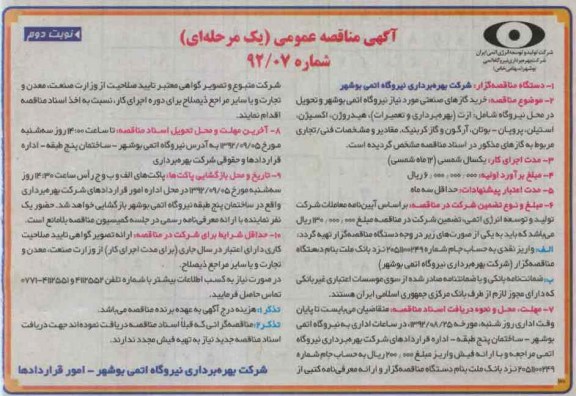 نوبت دوم
آگهی مناقصه عمومی (یک مرحله‌ای)
شماره ۹۲/۰۷
شرکت تولید و توسعه انرژی اتمی ایران
شرکت بهره‌برداری نیروگاه اتمی
بوشهر (سهامی خاص)
۱- دستگاه مناقصه‌گزار: شرکت بهره‌برداری نیروگاه اتمی بوشهر
۲- موضوع مناقصه: خرید گازهای صنعتی مورد نیاز نیروگاه اتمی بوشهر و تحویل
در محل نیروگاه شامل: ازت (بهره‌برداری و تعمیرات)، هیدروژن، اکسیژن،
استیلن، پروپان - بوتان، آرگون و گاز کربنیک. مقادیر و مشخصات فنی/تجاری
مربوط به گازهای مذکور در اسناد مناقصه مشخص گردیده است.
۳- مدت اجرای کار: یکسال شمسی (۱۲ ماه شمسی)
۴- مبلغ برآورد اولیه: ۶,۰۰۰,۰۰۰,۰۰۰ ریال
۵- مدت اعتبار پیشنهادات: حداقل سه ماه
۶- مبلغ و نوع تضمین شرکت در مناقصه: براساس آیین‌نامه معاملات شرکت
تولید و توسعه انرژی اتمی، تضمین شرکت در مناقصه مبلغ ۱۳۰,۰۰۰,۰۰۰ ریال
می‌باشد که باید به یکی از صورت‌های زیر در وجه دستگاه مناقصه‌گزار تهیه گردد:
الف: واریز نقدی به حساب جام شماره ۲۰۵۱۱۰۰۲۴۹ نزد بانک ملت بنام دستگاه
مناقصه‌گزار (شرکت بهره‌برداری نیروگاه اتمی بوشهر)
ب: ضمانت‌نامه بانکی و یا ضمانتنامه صادر شده از سوی موسسات اعتباری غیربانکی
که دارای مجوز لازم از طرف بانک مرکزی جمهوری اسلامی ایران هستند.
۷- مهلت، محل و نحوه دریافت اسناد مناقصه: متقاضیان می‌بایست تا پایان
وقت اداری روز شنبه، مورخه ۱۳۹۲/۰۸/۲۵، در ساعات اداری به نیروگاه اتمی
بوشهر - ساختمان پنج طبقه - اداره قراردادهای شرکت بهره‌برداری نیروگاه
اتمی مراجعه و با ارائه فیش واریز مبلغ ۲۰۰,۰۰۰ ریال به حساب جام شماره
۲۰۵۱۱۰۰۲۴۹ نزد بانک ملت بنام دستگاه مناقصه‌گزار و ارائه معرفی‌نامه کتبی از
شرکت متبوع و تصویر گواهی معتبر تایید صلاحیت از وزارت صنعت، معدن و
تجارت و یا سایر مراجع ذیصلاح برای دوره اجرای کار، نسبت به اخذ اسناد مناقصه
اقدام نمایند.
۸- آخرین مهلت و محل تحویل اسناد مناقصه: تا ساعت ۱۴:۰۰ روز سه‌شنبه
مورخ ۱۳۹۲/۰۹/۰۵ به آدرس نیروگاه اتمی بوشهر - ساختمان پنج طبقه - اداره
قراردادها و حقوقی شرکت بهره‌برداری
۹- تاریخ و محل بازگشایی پاکت‌ها: پاکت‌های الف و ب و ج رأس ساعت ۱۴:۳۰ روز
سه‌شنبه مورخ ۱۳۹۲/۰۹/۰۵ در محل اداره امور قراردادهای شرکت بهره‌برداری
واقع در ساختمان پنج طبقه نیروگاه اتمی بوشهر بازگشایی خواهد شد. حضور یک
نفر نماینده با ارائه معرفی‌نامه رسمی در جلسه کمیسیون مناقصه بلامانع است.
۱۰- حداقل شرایط برای شرکت در مناقصه: ارائه تصویر گواهی تایید صلاحیت
کاری دارای اعتبار در سال جاری (برای مدت اجرای کار) از وزارت صنعت، معدن و
تجارت و یا سایر مراجع ذیصلاح.
در صورت نیاز به کسب اطلاعات بیشتر با شماره تلفن ۴۱۱۲۵۵۲ و ۴۱۱۲۵۵۱-۰۷۷۱
تماس حاصل فرمایید.
تذکر۱: هزینه درج آگهی به عهده برنده مناقصه می‌باشد.
تذکر۲: مناقصه‌گرانی که قبلا اسناد مناقصه دریافت نموده‌اند جهت دریافت
اسناد مناقصه جدید نیاز به تهیه فیش مجدد ندارند.
شرکت بهره‌برداری نیروگاه اتمی بوشهر - امور قراردادها